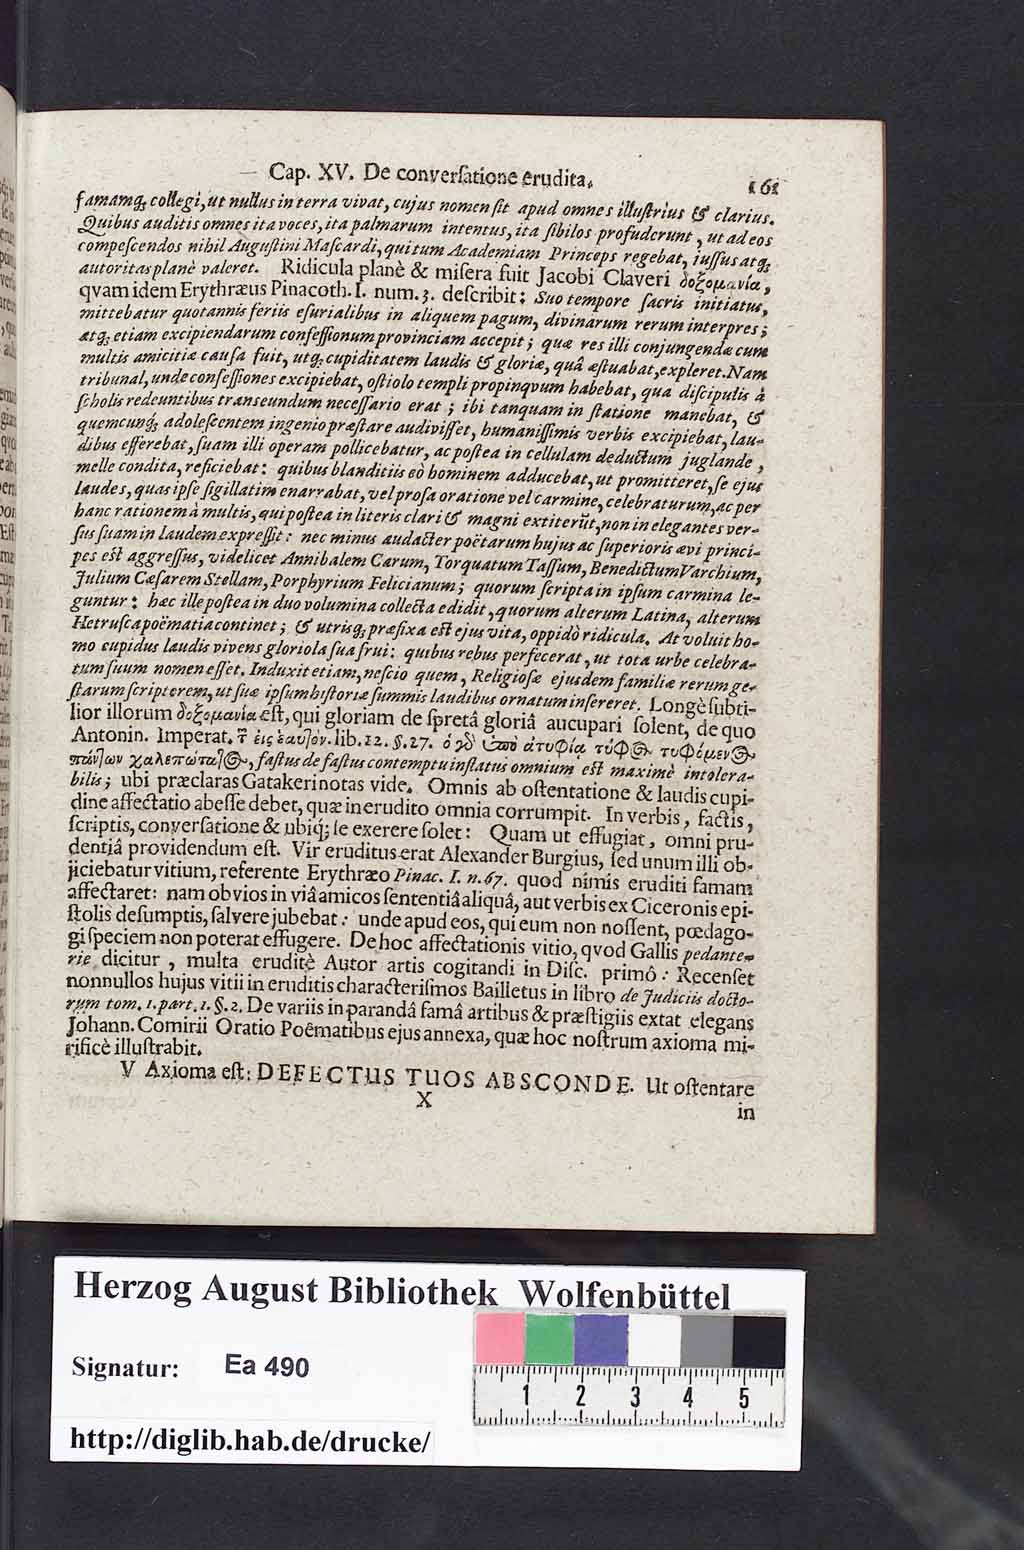 Cap. XV. De conversatione erudita. 161
famamq; collegi, ut nullus in terra vivat, cujus nomen sit apud omnes illustrius & clarius.
Quibus auditis omnes ita voces, ita palmarum intentus, ita sibilos profuderunt, ut ad eos
compescendos nihil Augustini Mascardi, qui tum Academiam Princeps regebat, jussus atq;
autoritas planè valeret. Ridicula planè & misera fuit Jacobi Claveri δοξομανία,
qvam idem Erythræus Pinacoth. I. num. 3. describit: Suo tempore sacris initiatus,
mittebatur quotannis feriis esurialibus in aliquem pagum, divinarum rerum interpres;
atq; etiam excipiendarum confessionum provinciam accepit; quæ res illi conjungendæ cum
multis amicitiæ causa fuit, utq; cupiditatem laudis & gloriæ, quâ æstuabat, expleret. Nam
tribunal, unde confessiones excipiebat, ostiolo templi propinqvum habebat, qua discipulis à
scholis redeuntibus transeundum necessario erat; ibi tanquam in statione manebat, &
quemcunq; adolescentem ingenio præstare audivisset, humanissimis verbis excipiebat, lau-
dibus efferebat, suam illi operam pollicebatur, ac postea in cellulam deductum juglande,
melle condita, reficiebat: quibus blanditiis eò hominem adducebat, ut promitteret, se ejus
laudes, quas ipse sigillatim enarrabat, vel prosa oratione vel carmine, celebraturum, ac per
hanc rationem à multis, qui postea in literis clari & magni extiterūt, non inelegantes ver-
sus suam in laudem expressit: nec minus audacter poëtarum hujus ac superioris ævi princi-
pes est aggressus, videlicet Annibalem Carum, Torquatum Tassum, Benedictum Varchium,
Julium Cæsarem Stellam, Porphyrium Felicianum; quorum scripta in ipsum carmina le-
guntur: hæc ille postea in duo volumina collecta edidit, quorum alterum Latina, alterum
Hetrusca poëmatia continet; & utrisq; præfixa est ejus vita, oppidò ridicula. At voluit ho-
mo cupidus laudis vivens gloriola sua frui: quibus rebus perfecerat, ut tota urbe celebra-
tum suum nomen esset. Induxit etiam, nescio quem, Religiosæ ejusdem familiæ rerum ge-
starum scripterem, ut suæ ipsum historiæ summis laudibus ornatum insereret. Longè subti-
lior illorum δοξομανία est, qui gloriam de spretâ gloriâ aucupari solent, de quo
Antonin. Imperat. τ εἰς ἑαυτὸν. lib. 12. §. 27. ὁ γὸ ὑπὸ ἀτυφίᾳ τύφ@ τυφόμεν@
πάντων χαλεπώτατ@, fastus de fastus contemptu inflatus omnium est maximè intolera-
bilis; ubi præclaras Gatakeri notas vide. Omnis ab ostentatione & laudis cupi-
dine affectatio abesse debet, quæ in erudito omnia corrumpit. In verbis, factis,
scriptis, conversatione & ubiq; se exerere solet: Quam ut effugiat, omni pru-
dentiâ providendum est. Vir eruditus erat Alexander Burgius, sed unum illi ob-
jiciebatur vitium, referente Erythræo Pinac. I. n. 67. quod nimis eruditi famam
affectaret: nam obvios in viâ amicos sententiâ aliquâ, aut verbis ex Ciceronis epi-
stolis desumptis, salvere jubebat: unde apud eos, qui eum non nossent, pœdago-
gi speciem non poterat effugere. De hoc affectationis vitio, qvod Gallis pedante-
rie dicitur, multa eruditè Autor artis cogitandi in Disc. primô: Recenset
nonnullos hujus vitii in eruditis characterismos Bailletus in libro de Judiciis docto-
rum tom. 1. part. 1. §. 2. De variis in parandâ famâ artibus & præstigiis extat elegans
Johann. Comirii Oratio Poëmatibus ejus annexa, quæ hoc nostrum axioma mi-
rificè illustrabit.
V Axioma est: DEFECTUS TUOS ABSCONDE. Ut ostentare
X
in
Herzog August Bibliothek Wolfenbüttel
Signatur: Ea 490
http://diglib.hab.de/drucke/
1 2 3 4 5